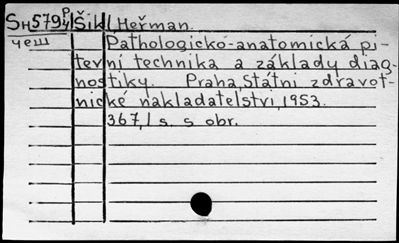 Sн579 Р Šikl Heřman.
чеш Pathologicko-anatomická pi-
tevní technika a základy diag-
nostiky. Praha, Státní zdravot-
nické nakladatelství, 1953.
367,1 s. s obr.